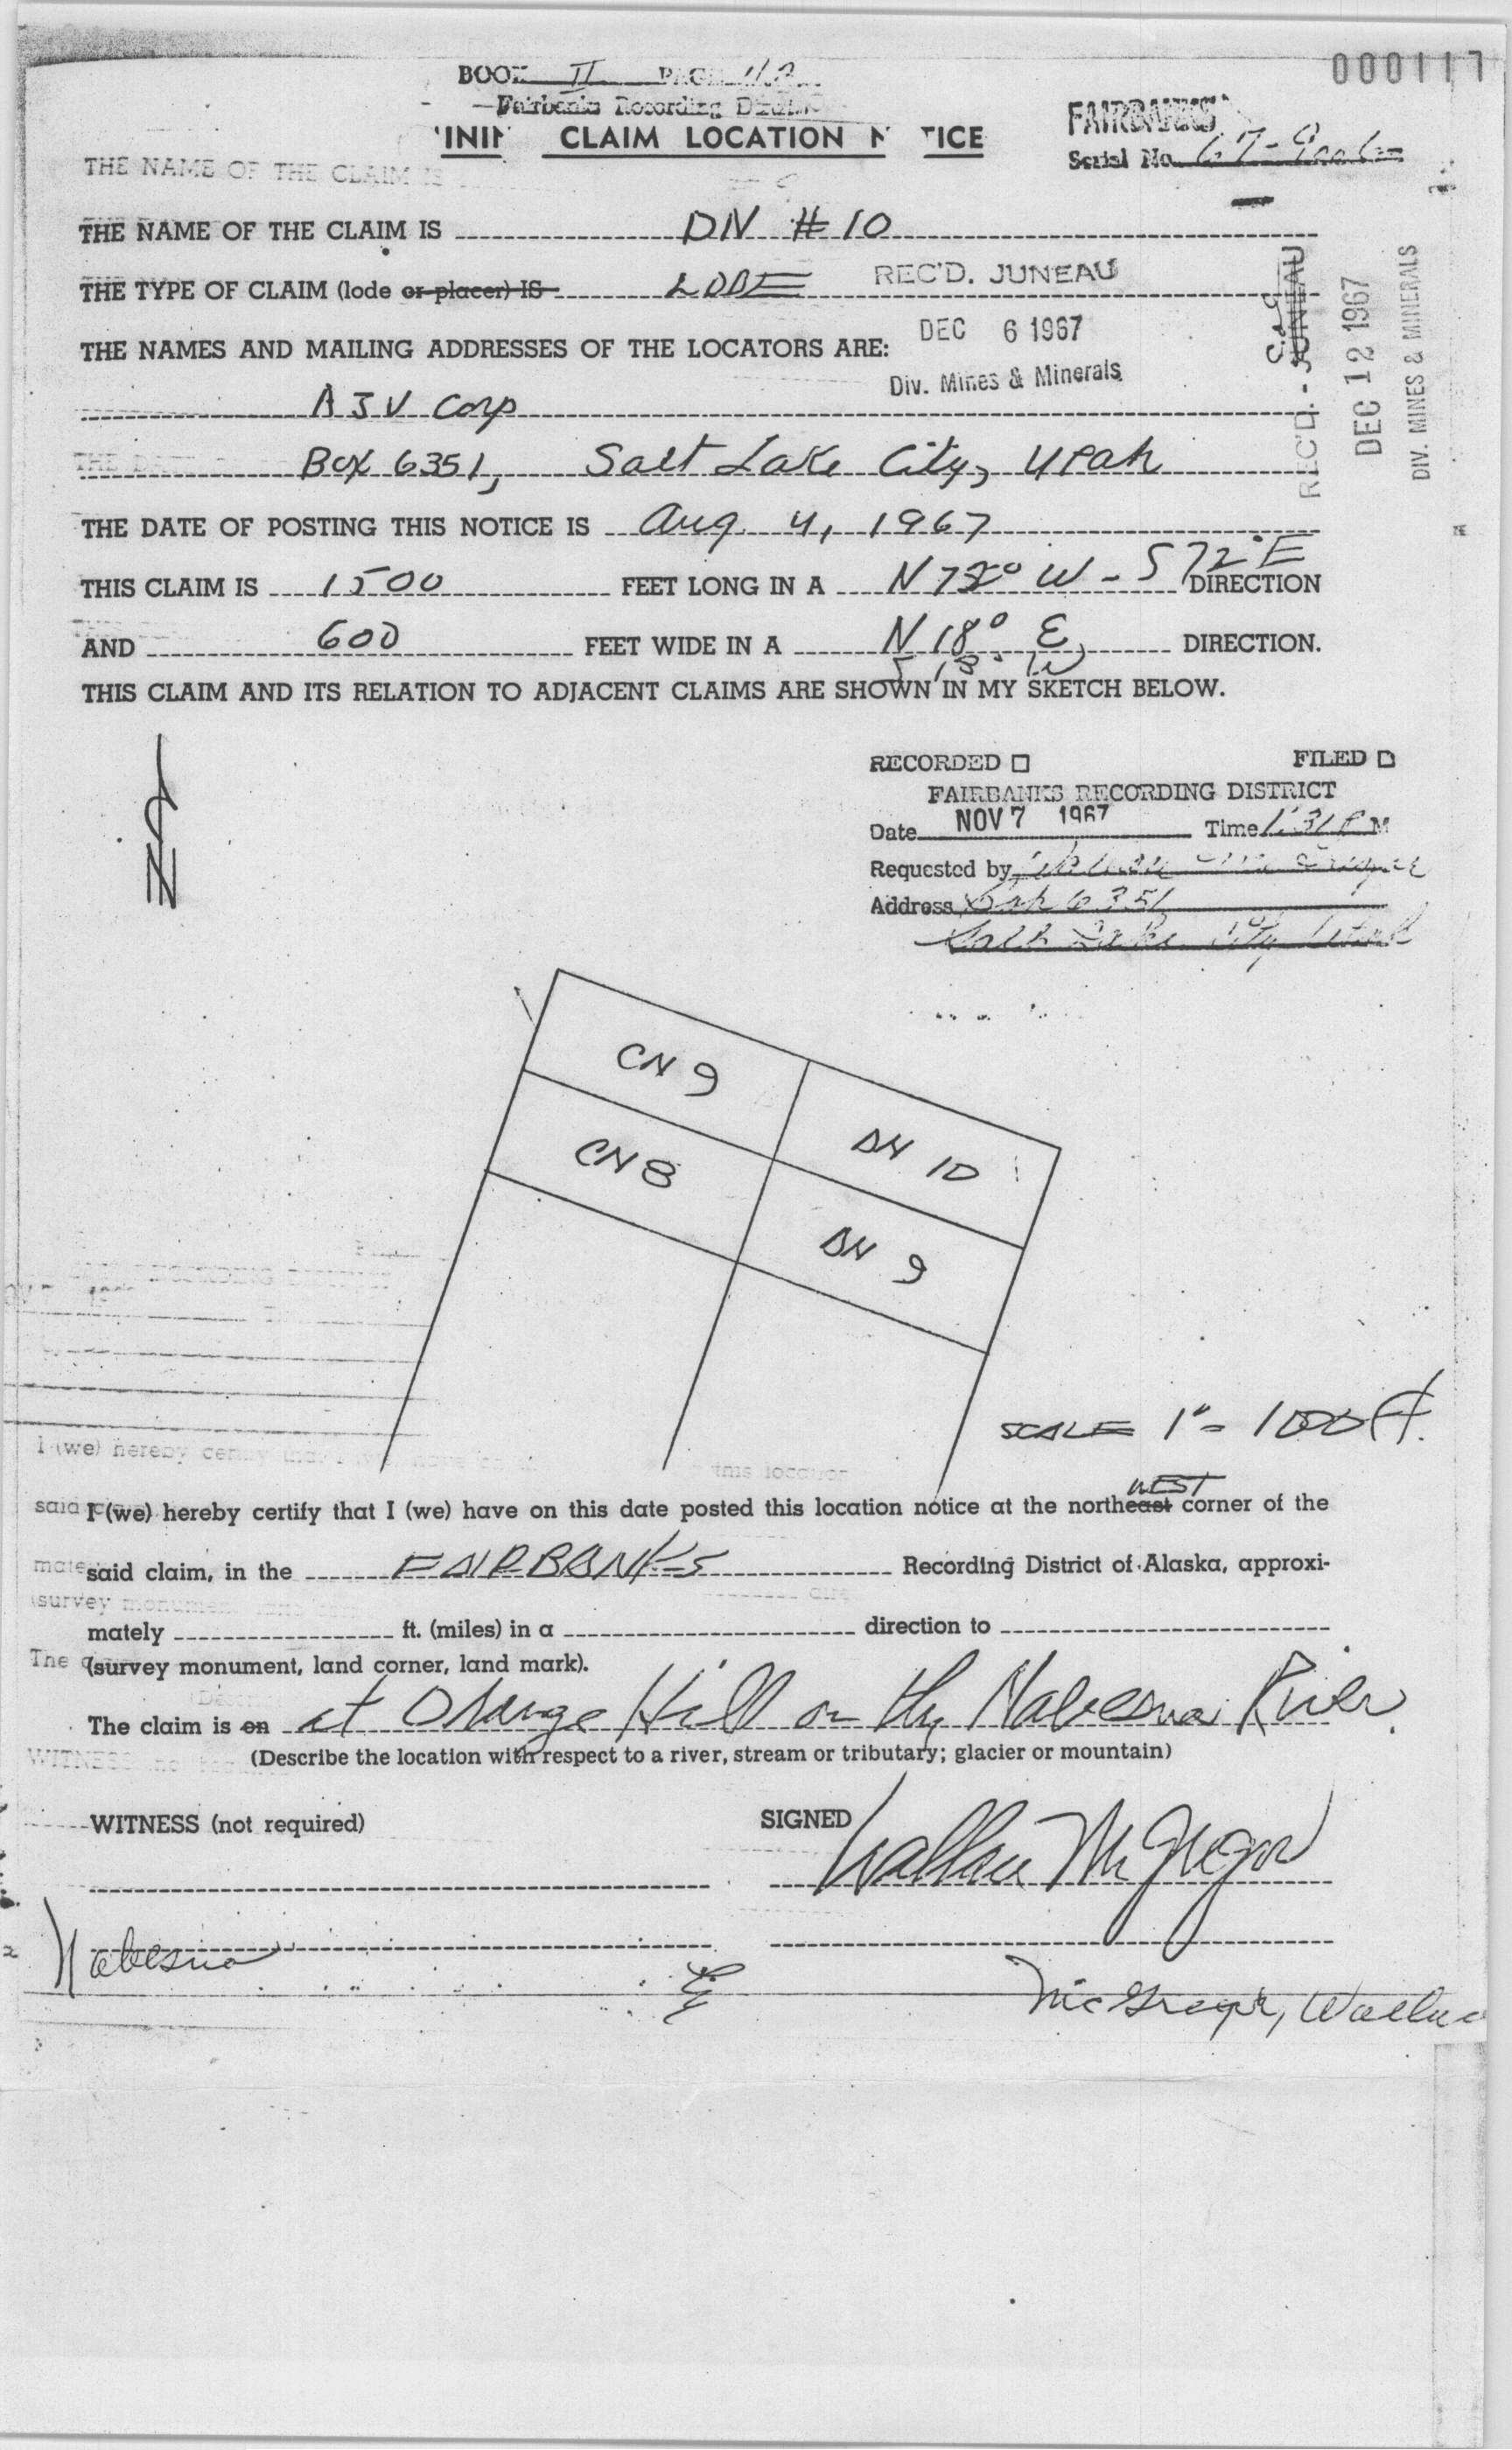 000117
BOOK II PAGE
Fairbanks Recording
FAIRBANKS
'INI CLAIM LOCATION N TICE
Serial No. 67-
THE NAME OF THE CLAIM IS
THE NAME OF THE CLAIM IS DN #10
THE TYPE OF CLAIM (lode or placer) IS LODE
REC'D. JUNEAU
DEC 6 1967
Div. Mines & Minerals
REC'D. - JUNEAU
DEC 12 1967
DIV. MINES & MINERALS
THE NAMES AND MAILING ADDRESSES OF THE LOCATORS ARE:
AJV Corp
Box 6351, Salt Lake City, Utah
THE DATE OF POSTING THIS NOTICE IS Aug 4, 1967
THIS CLAIM IS 1500 FEET LONG IN A N 72° W - S 72° E DIRECTION
AND 600 FEET WIDE IN A N 18° E DIRECTION.
S 18° W
THIS CLAIM AND ITS RELATION TO ADJACENT CLAIMS ARE SHOWN IN MY SKETCH BELOW.
RECORDED FILED
FAIRBANKS RECORDING DISTRICT
Date NOV 7 1967 Time 1:31 P M
Requested by
Address Box 6351
Salt Lake City Utah
N
CN 9
DN 10
CN 8
DN 9
SCALE 1" = 1000 ft.
I (we) hereby
this location
WEST
I (we) hereby certify that I (we) have on this date posted this location notice at the northeast corner of the
said claim, in the FAIRBANKS Recording District of Alaska, approxi-
mately ft. (miles) in a direction to
(survey monument, land corner, land mark).
The claim is on at Orange Hill on the Nabesna River
(Describe the location with respect to a river, stream or tributary; glacier or mountain)
WITNESS (not required) SIGNED Wallace McGregor
Nabesna
McGregor, Wallace